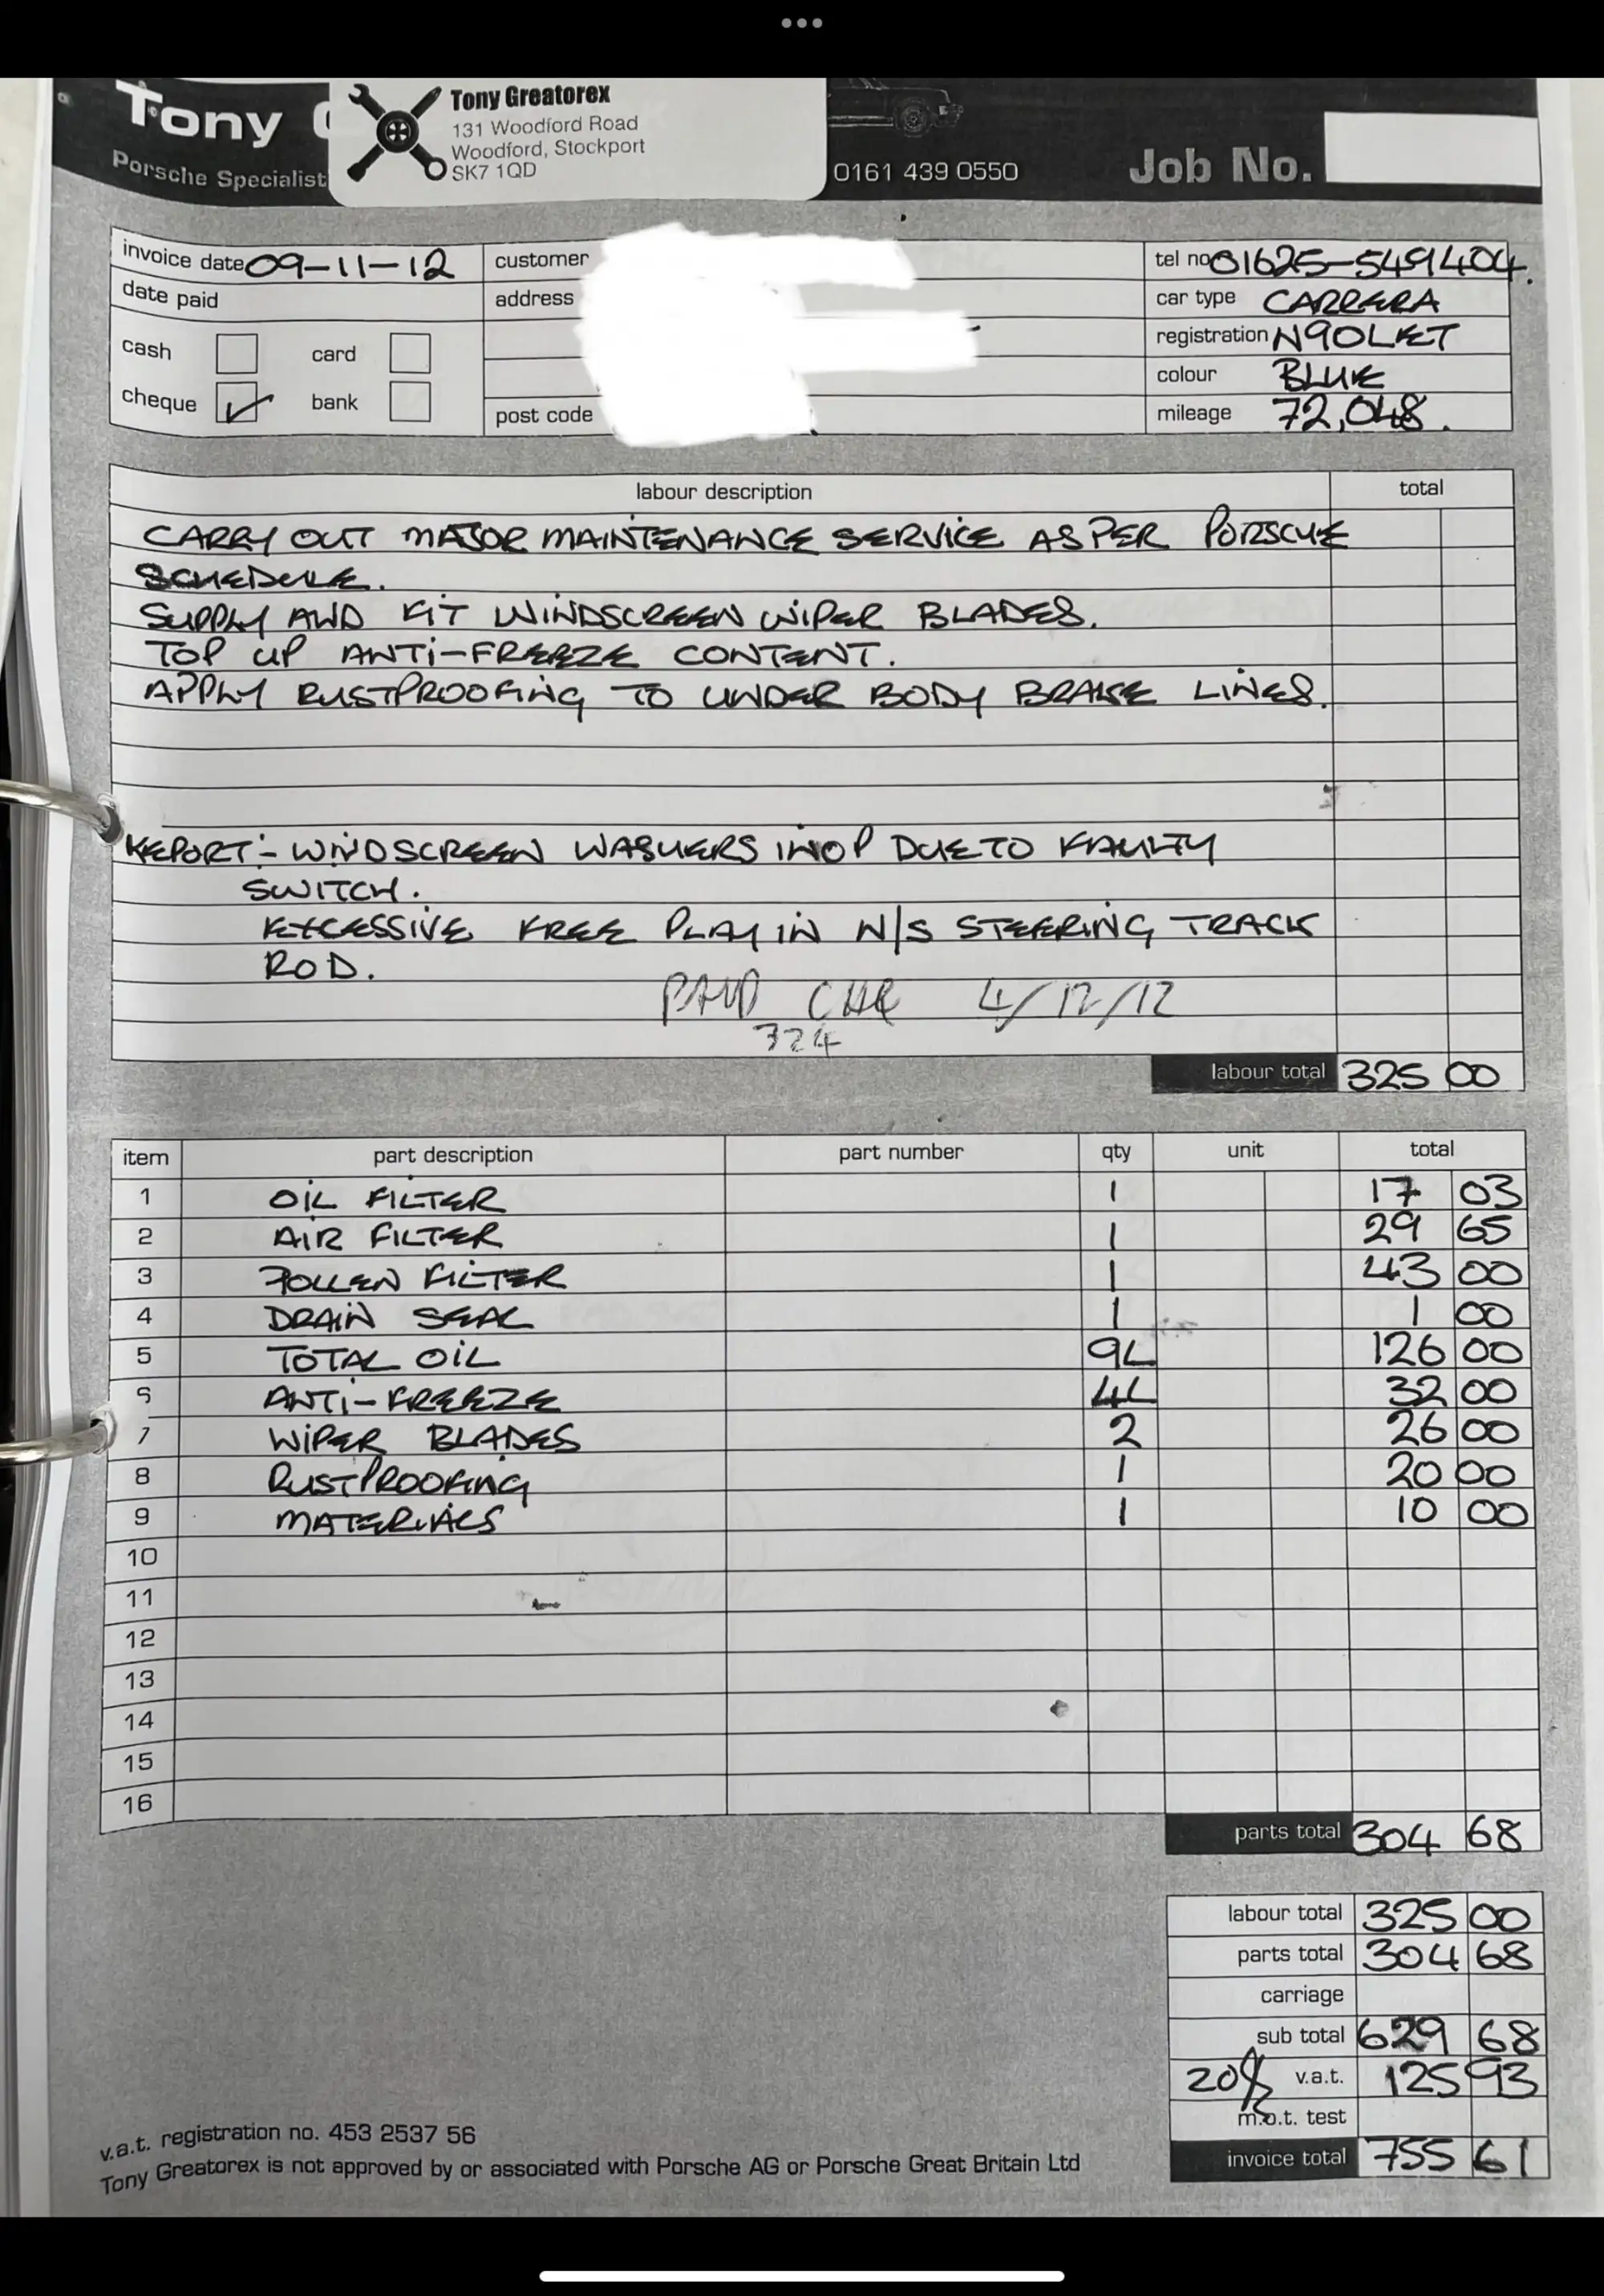 Tony
Porsche Specialist
Tony Greatorex
131 Woodford Road
Woodford, Stockport
SK7 1QD
0161 439 0550
Job No.
invoice date 09-11-12
customer
tel no 01625-5491404.
date paid
address
car type CARRERA
cash
card
registration N90LET
colour BLUE
cheque
bank
post code
mileage 72,048.
labour description
total
CARRY OUT MAJOR MAINTENANCE SERVICE AS PER PORSCHE
SCHEDULE.
SUPPLY AND FIT WINDSCREEN WIPER BLADES.
TOP UP ANTI-FREEZE CONTENT.
APPLY RUSTPROOFING TO UNDER BODY BRAKE LINES.
REPORT:- WINDSCREEN WASHERS INOP DUE TO FAULTY
SWITCH.
EXCESSIVE FREE PLAY IN N/S STEERING TRACK
ROD.
PAID CHQ 4/12/12
324
labour total 325 00
item part description part number qty unit total
1 OIL FILTER 1 17 03
2 AIR FILTER 1 29 65
3 POLLEN FILTER 1 43 00
4 DRAIN SEAL 1 1 00
5 TOTAL OIL 9L 126 00
6 ANTI-FREEZE 4L 32 00
7 WIPER BLADES 2 26 00
8 RUSTPROOFING 1 20 00
9 MATERIALS 1 10 00
10
11
12
13
14
15
16
parts total 304 68
labour total 325 00
parts total 304 68
carriage
sub total 629 68
20% v.a.t. 125 93
m.o.t. test
invoice total 755 61
v.a.t. registration no. 453 2537 56
Tony Greatorex is not approved by or associated with Porsche AG or Porsche Great Britain Ltd